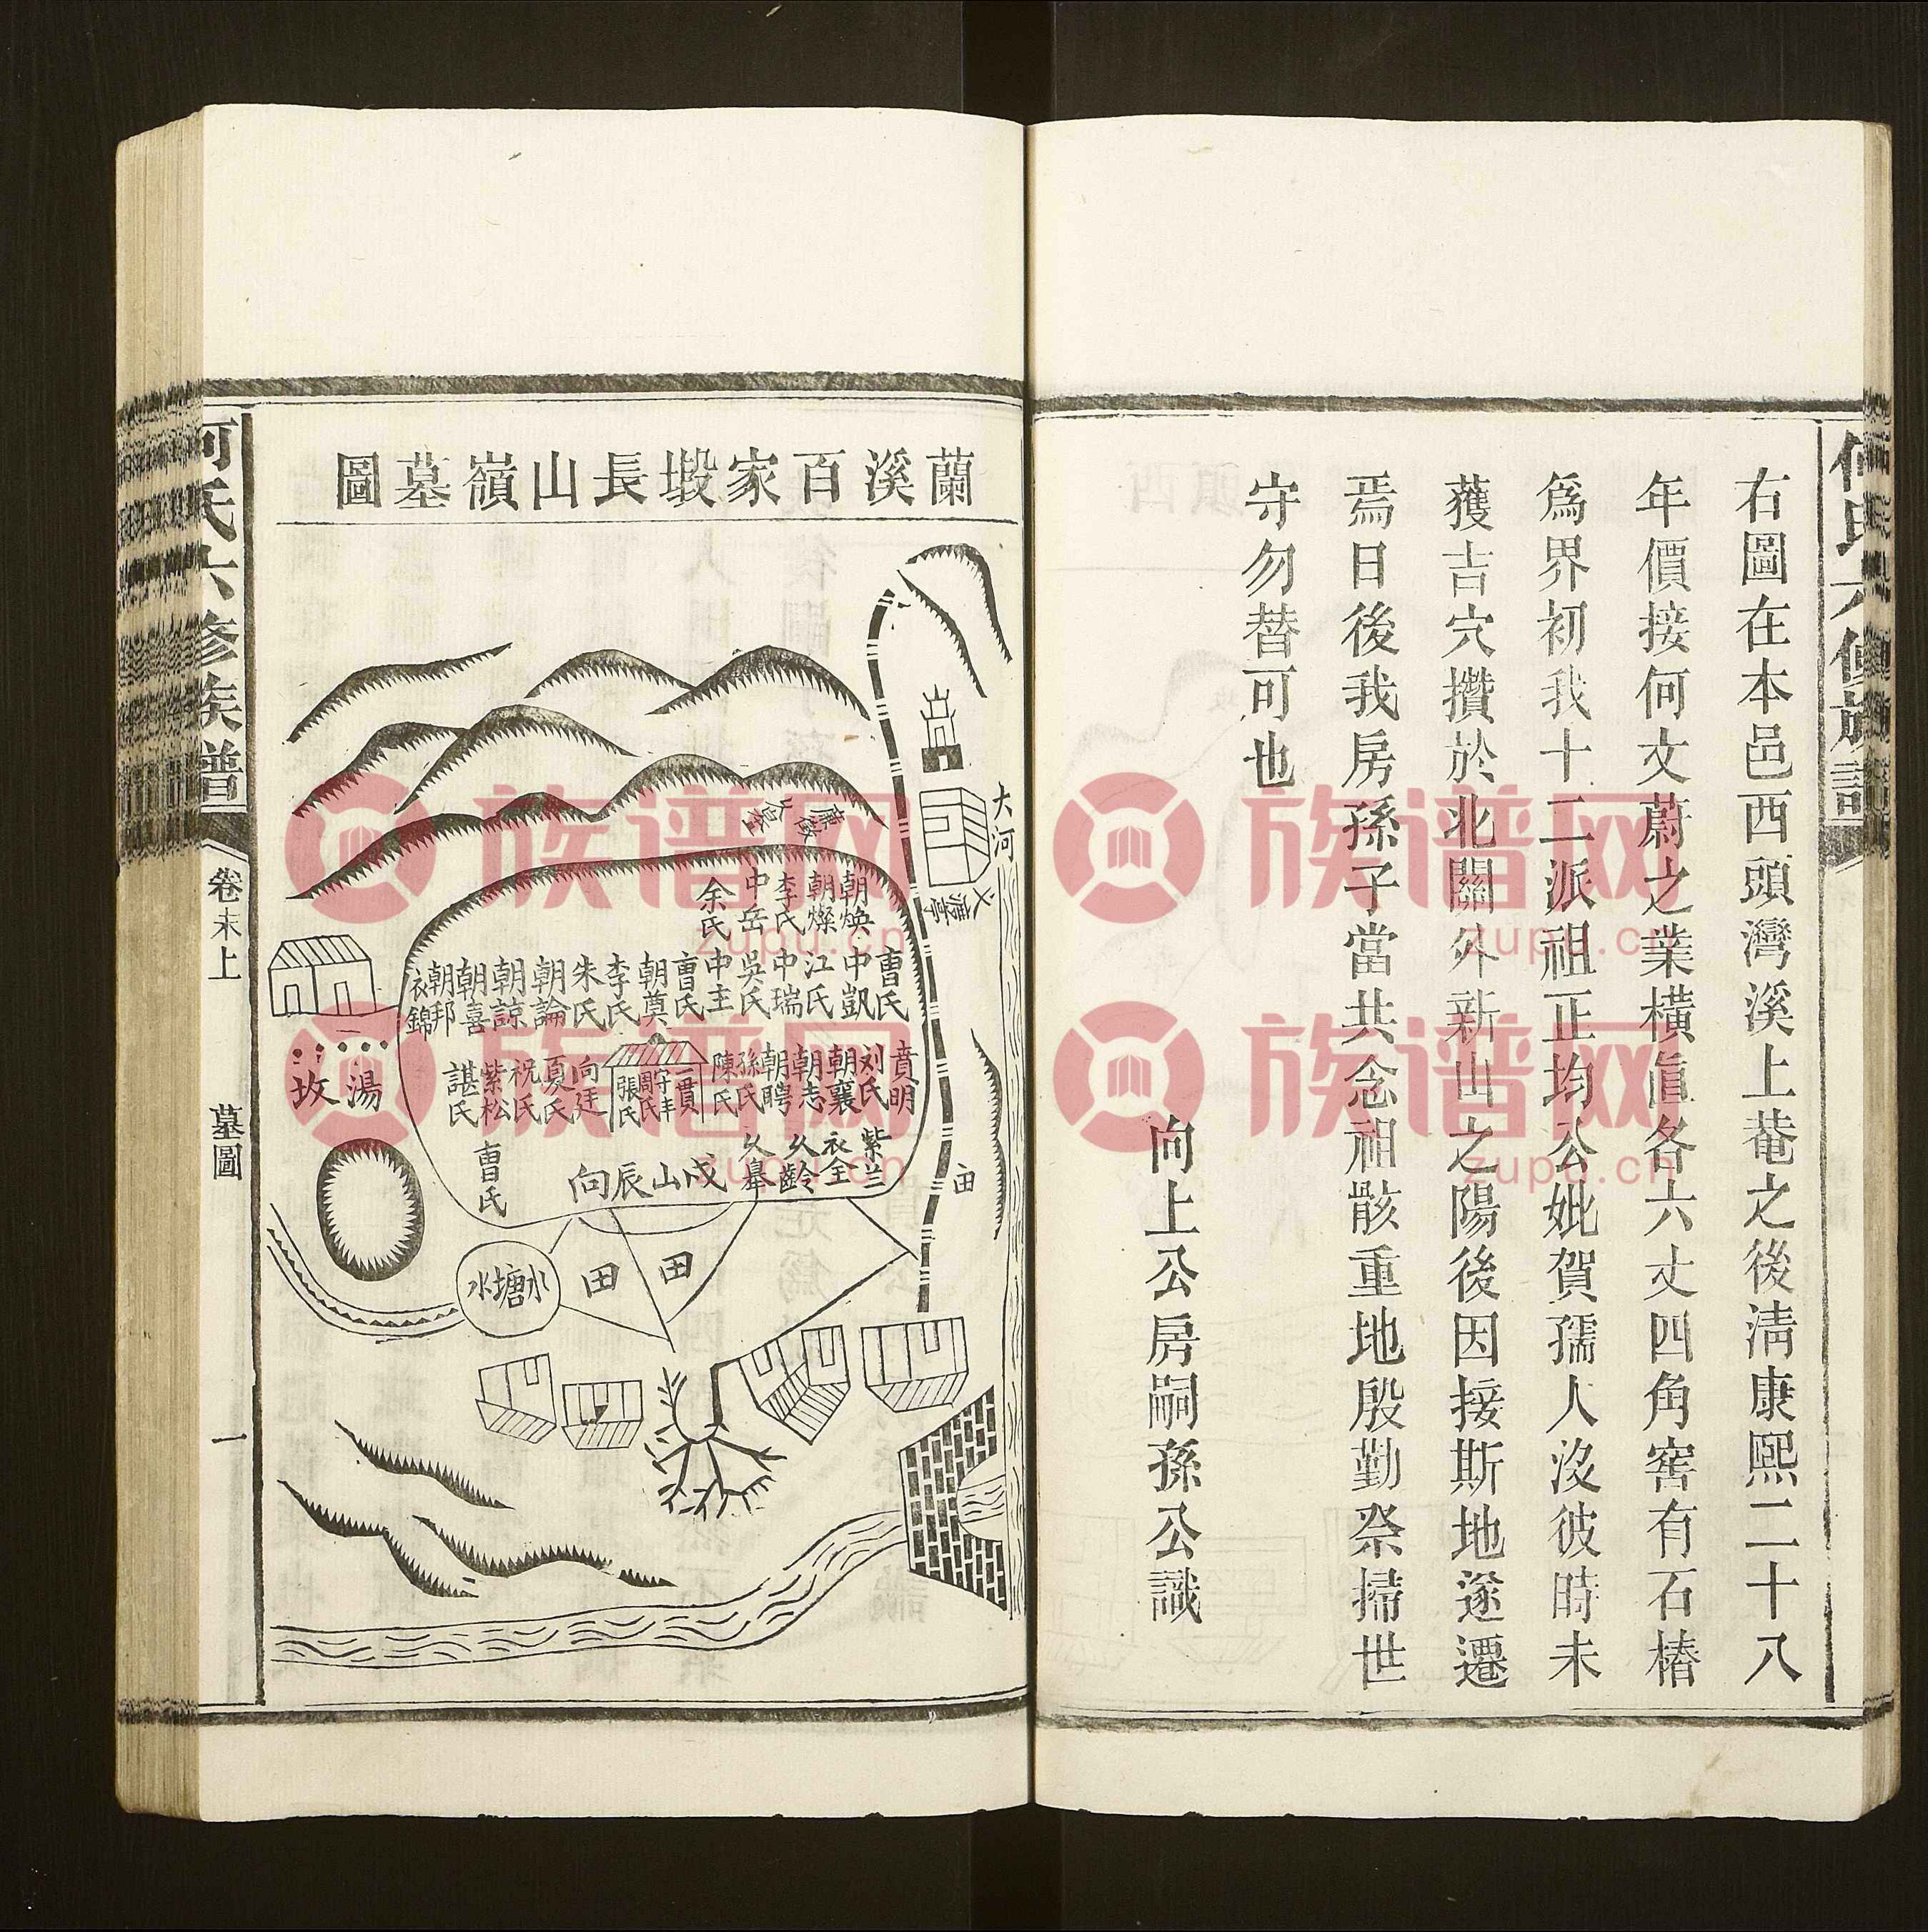 右圖在本邑西頭灣溪上菴之後清康熙二十八
年價接何文蔚之業橫直各六丈四角窖有石樁
爲界初我十二派祖正均公妣賀孺人沒彼時未
蒦吉穴攢於北關外新山之陽後因接斯地遂遷
焉日後我房孫子當共念祖骸重地殷勤祭掃世
守勿替可也
向上公房嗣孫公識
蘭溪百家塅長山嶺墓圖
大河
朝煥
朝燦
李氏
中岳
余氏
曹氏
中凱
江氏
中瑞
吳氏
中主
曹氏
朝奠
李氏
朱氏
朝論
朝諒
朝喜
朝邦
衣錦
賁明
刘氏
朝襄
朝志
朝聘
孫氏
陳氏
一貫
字丰
周氏
張氏
向廷
夏氏
祝氏
紫松
諶氏
紫兰
衣全
久齡
久臯
戌山辰向
曹氏
湯坟
田
田
田
水塘水
何氏六修族譜
卷末上
墓圖
一
族谱网
zupu.cn
族谱网
zupu.cn
族谱网
zupu.cn
族谱网
zupu.cn